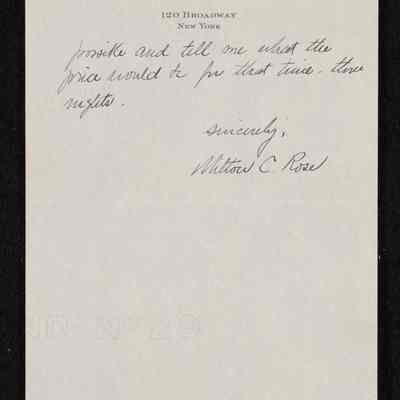 120 BROADWAY
NEW YORK
possible and tell me what the
price would be for that time - three
nights.
Sincerely,
Milton C. Rose